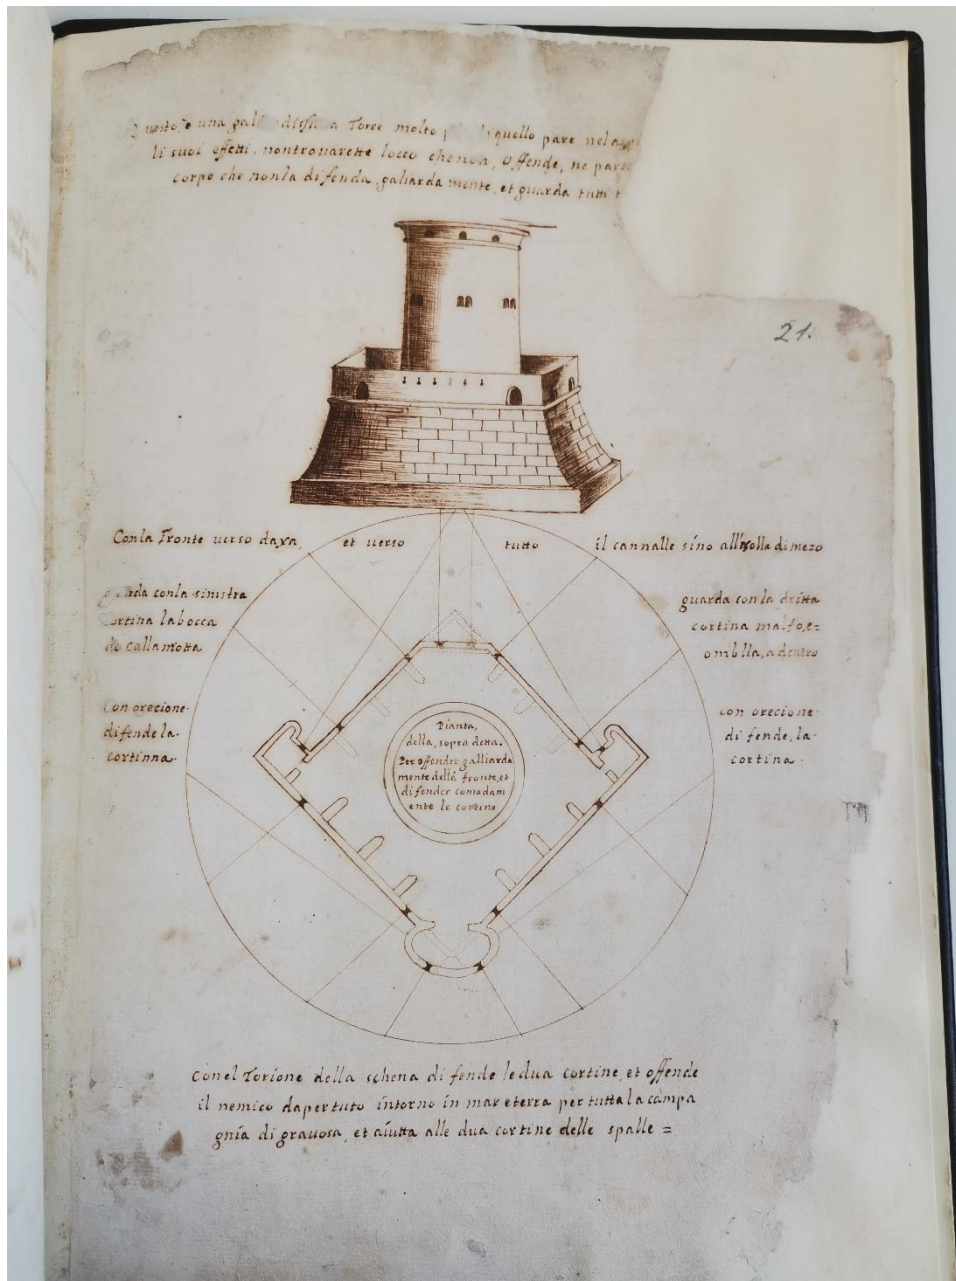 Questo, e una gali difsi a Torre molto p di quello pare nel
li suoi effetti, nontrouarette locco chenon, offende, ne parte
corpo che nonla difenda, galiarda mente, et guarda tutti
21.
Conla Fronte uerso daxa, et uerso tutto il cannalle sino all'isolla dimezo
guarda conla sinistra
Cortina labocca
de callamotta
guarda con la dritta
cortina malfo, e=
omblla, a dentro
Con orecione
difende la
cortinna.
con orecione
di fende, la
cortina.
Pianta,
della, sopra detta.
Per offender galliarda
mente della fronte, et
difender comodam
ente le cortine
Conel Torione della schena di fende le dua cortine, et offende
il nemico dapertuto intorno in mar eterra per tutta la campa
gnia di grauosa, et aiutta alle dua cortine delle spalle =